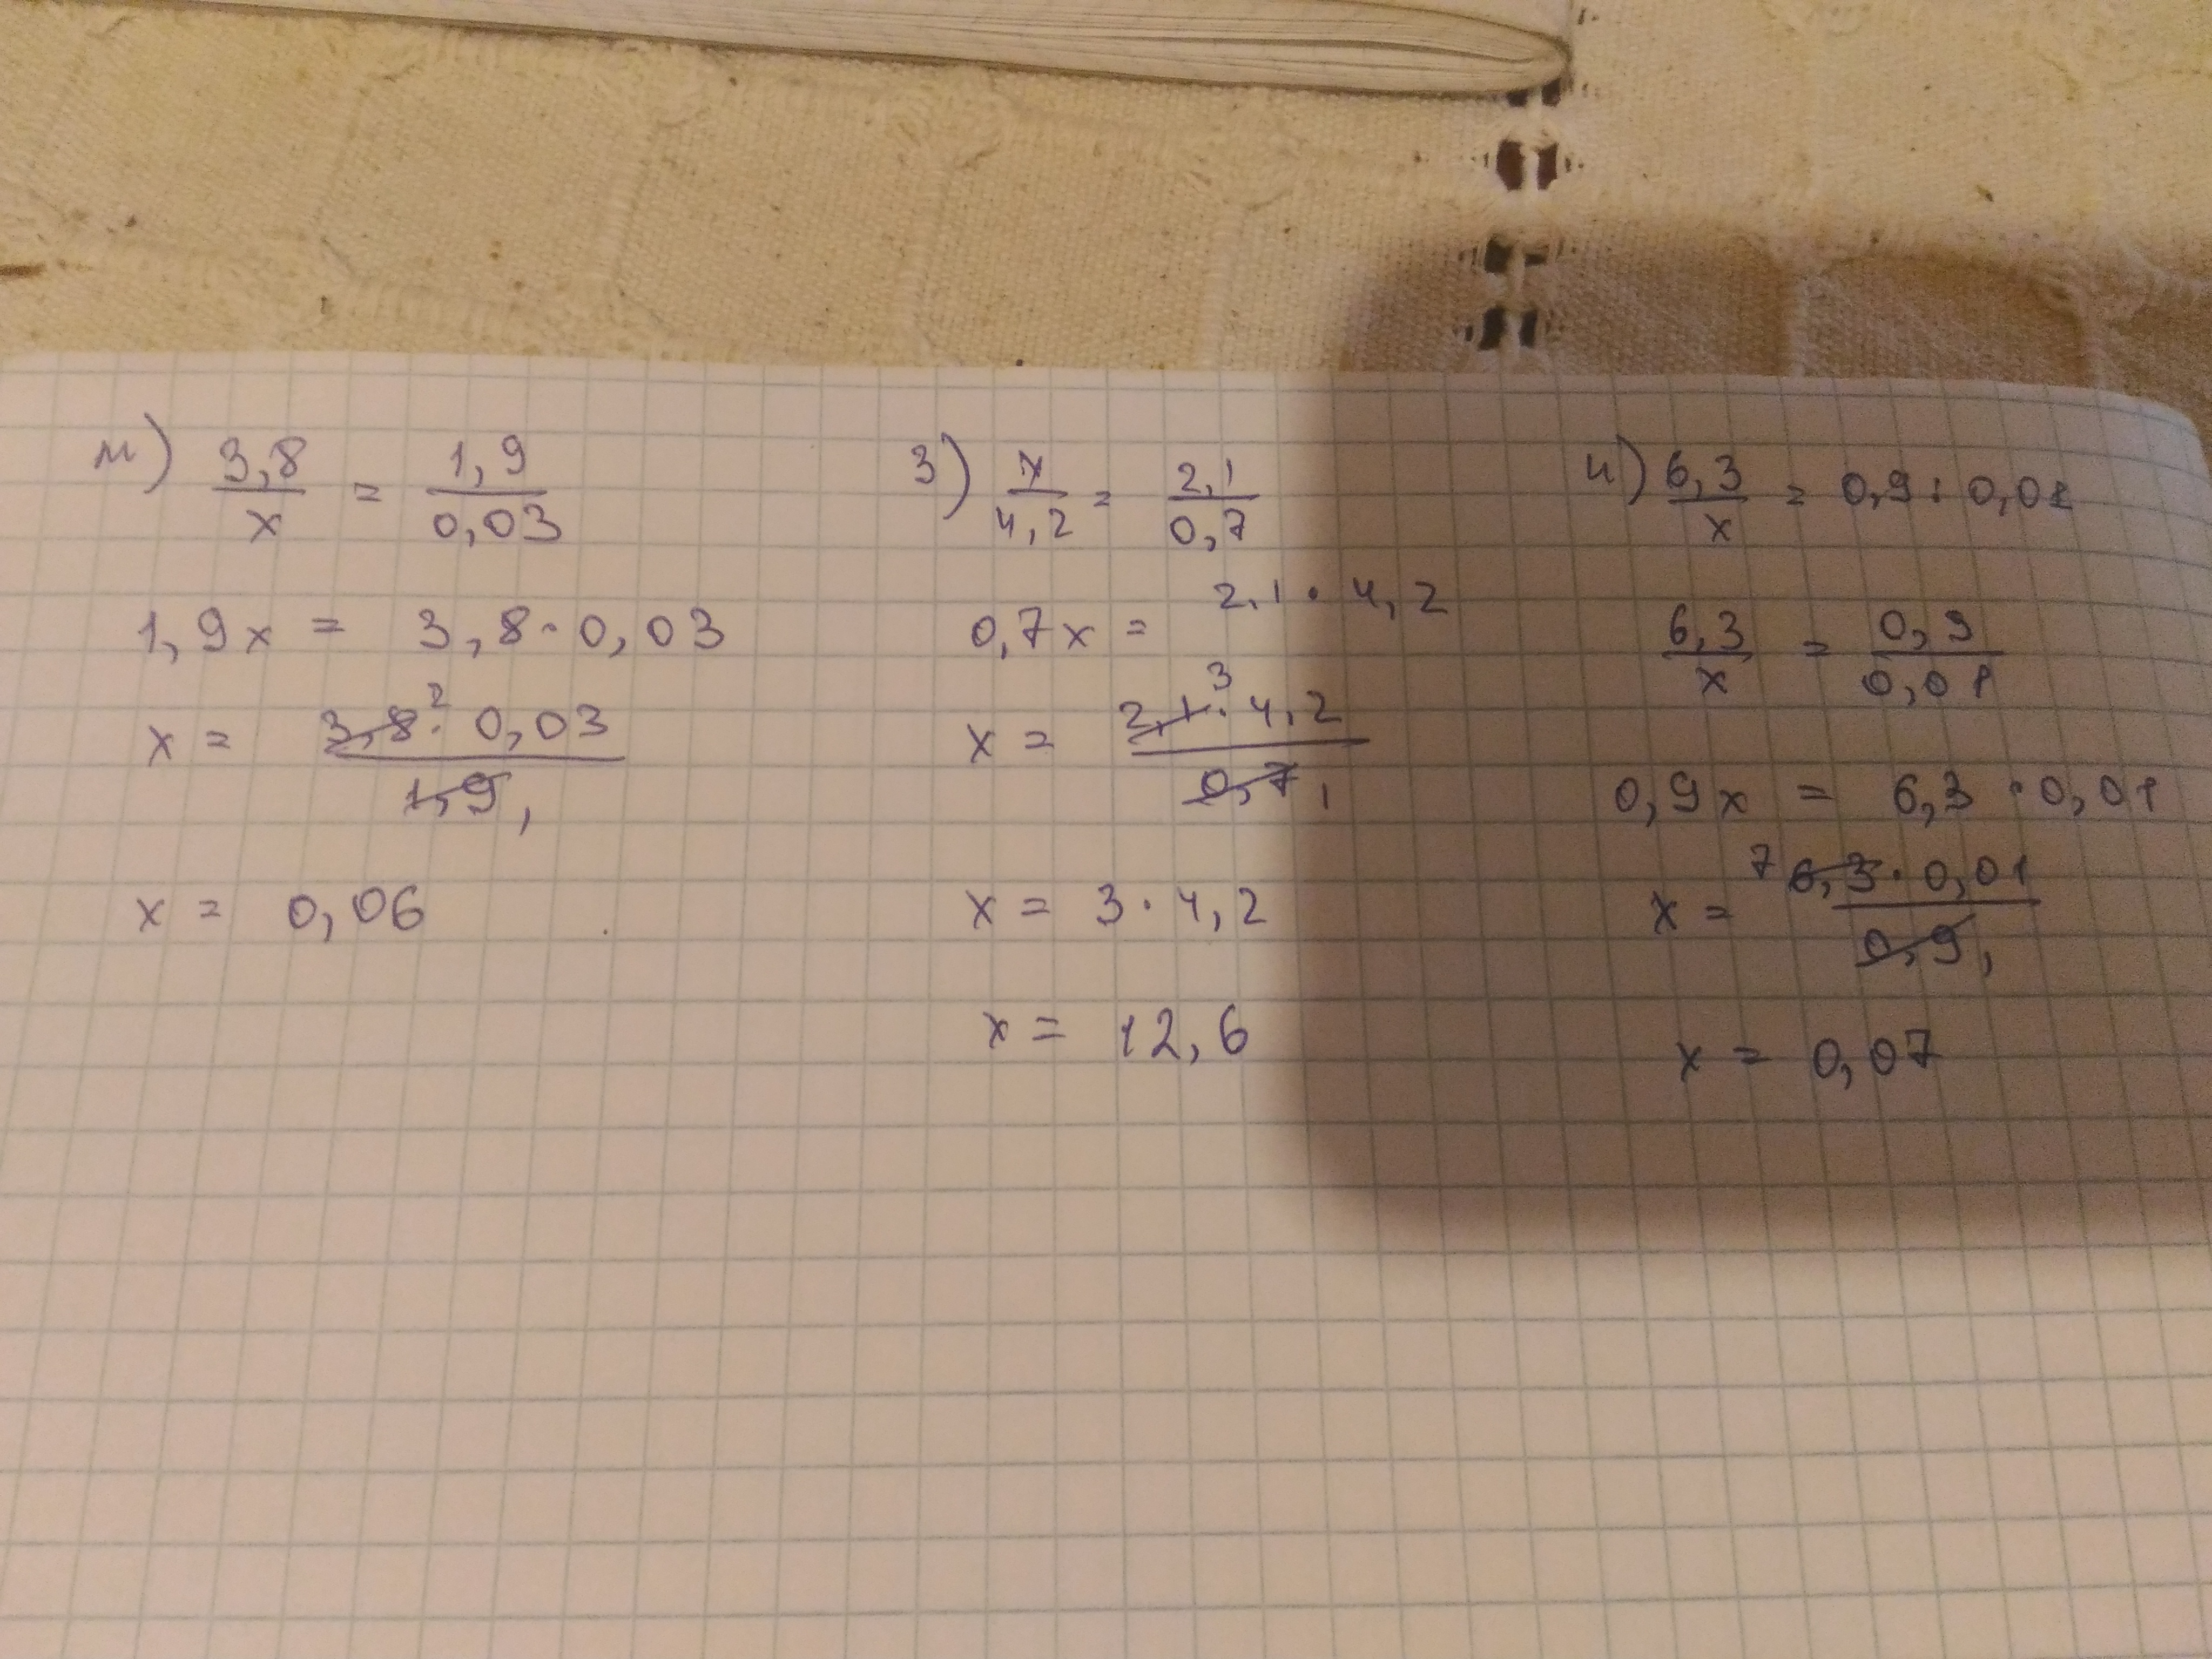 м) 3,8/x = 1,9/0,03
1,9x = 3,8·0,03
x = 3,8² · 0,03 / 1,9 1
x = 0,06
з) x/4,2 = 2,1/0,7
0,7x = 2,1·4,2
x = 2,1³ · 4,2 / 0,7 1
x = 3·4,2
x = 12,6
и) 6,3/x = 0,9 : 0,01
6,3/x = 0,9/0,01
0,9x = 6,3·0,01
x = 7 6,3·0,01 / 0,9 1
x = 0,07